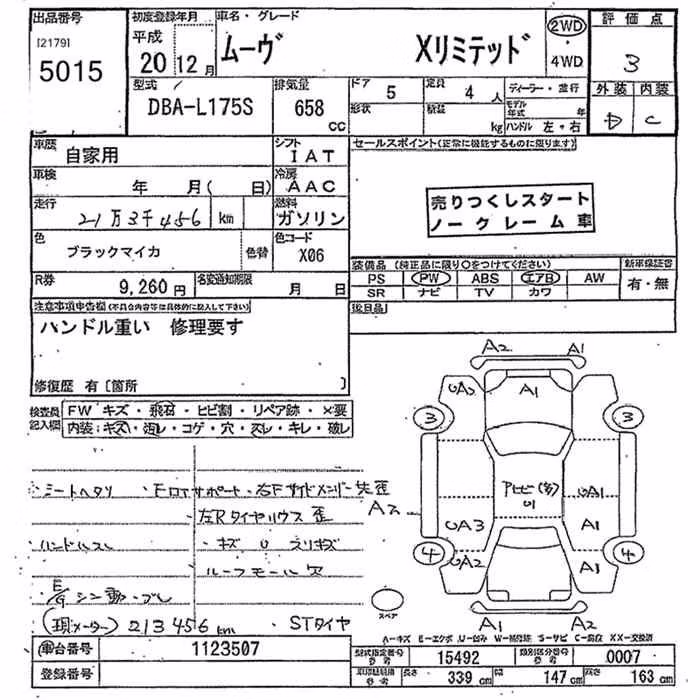 出品番号 初度登録年月 車名・グレード 評価点
[2179] 平成 2WD
5015 20 12月 ムーヴ Xリミテッド ・ 3
4WD
型式 排気量 ドア 5 定員 4人 ディーラー・並行 外装 内装
DBA-L175S 658 CC 形状 積載 kg モデル年式 年 D C
ハンドル 左・右
車歴 自家用 シフト IAT セールスポイント(正常に機能するものに限ります)
車検 年 月( 日) 冷房 AAC
走行 21万3千456 km 燃料 ガソリン
売りつくしスタート
ノークレーム車
色 ブラックマイカ 色替 色コード X06
装備品 (純正品に限り○をつけてください) 新車保証書
R券 9,260円 名変通知期限 月 日
PS PW ABS エアB AW 有・無
SR ナビ TV カワ
注意事項申告欄(不具合内容等は具体的に記入して下さい) 後日品
ハンドル重い 修理要す
修復歴 有〔箇所 〕
検査員記入欄 FW キズ・飛石・ヒビ割・リペア跡・×要
内装:キズ・汚レ・コゲ・穴・スレ・キレ・破レ
A2 A1
UA2 A1
3 3
シートヘタリ ・FロアサポートE・右Fサイドメンバー先歪
左Rタイヤハウス歪
A2 アトヒビ(多) U1 UA1
UA3 A1
ハンドルスレ ・キズ U スリキズ
ルーフモール欠
4 UA2 A1 4
E/g シン動・ブレ
スペア
A2 A2
(現メーター) 213456km ・STタイヤ
A−キズ E−エクボ U−凹み W−補修跡 S−サビ C−腐蝕 XX−交換済
車台番号 1123507 型式指定番号 参考 15492 類別区分番号 参考 0007
登録番号 長さ 339 cm 幅 147 cm 高さ 163 cm